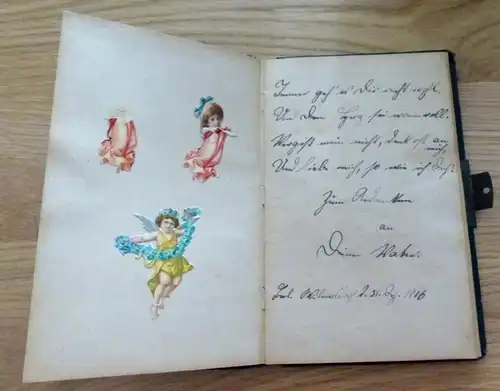 Immer geh' es Dir recht wohl.
Und Dein Herz sei wonnevoll.
Vergeß mein nicht, denk oft an
mich,
Und liebe mich, so wie ich Dich.
Zum Andenken
an
Deine
d. 31. 1916